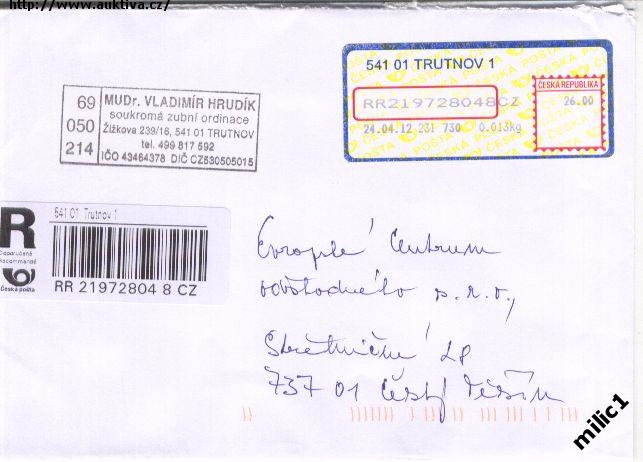 http://www.auktiva.cz/
541 01 TRUTNOV 1
RR219728048CZ
ČESKÁ REPUBLIKA
26.00
24.04.12 231 730 0.013kg
69
050
214
MUDr. VLADIMÍR HRUDÍK
soukromá zubní ordinace
Žižkova 239/16, 541 01 TRUTNOV
tel. 499 817 592
IČO 43464378 DIČ CZ530505015
R
Doporučeně
Recommandé
Česká pošta
541 01 Trutnov 1
RR 21972804 8 CZ
Evropské Centrum
odškodného s.r.o.,
Střelniční 28
737 01 Český Těšín
milic1